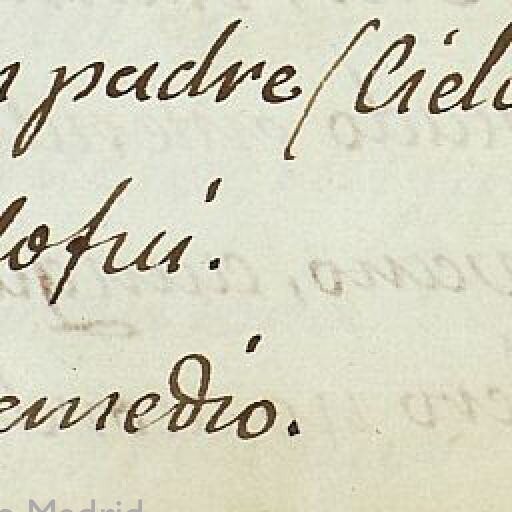 n padre (Cielo
lo fui.
emedio.
Madrid